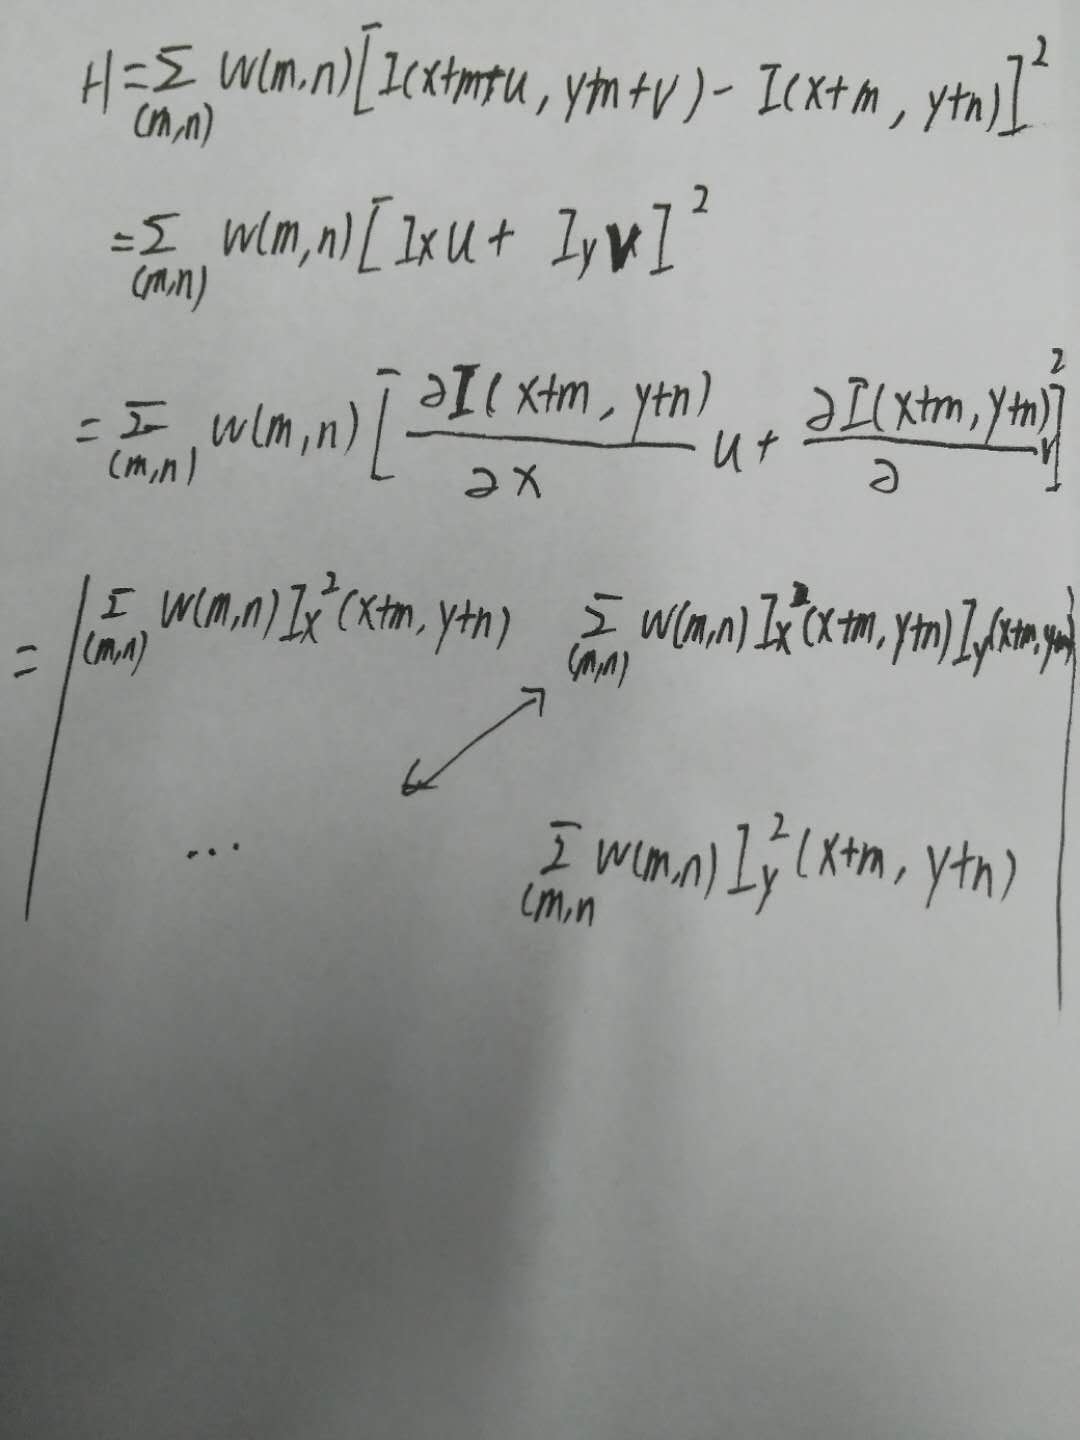 H = Σ_(m,n) W(m,n)[I(x+m+u, y+m+v) - I(x+m, y+n)]²
= Σ_(m,n) W(m,n)[I_x u + I_y v]²
= Σ_(m,n) W(m,n)[∂I(x+m, y+n)/∂x u + ∂I(x+m, y+n)/∂ v]²
= | Σ_(m,n) W(m,n) I_x²(x+m, y+n) Σ_(m,n) W(m,n) I_x(x+m, y+n) I_y(x+m, y+n) |
... Σ_(m,n W(m,n) I_y²(x+m, y+n)